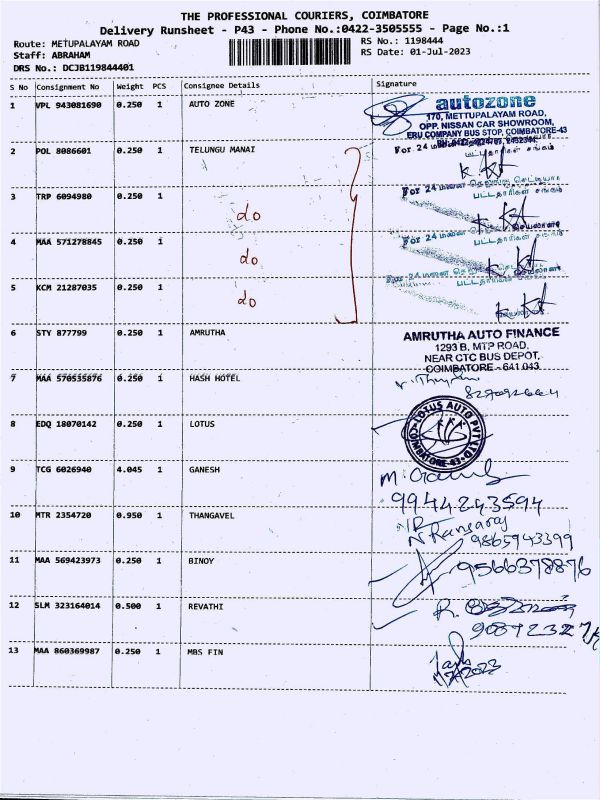 THE PROFESSIONAL COURIERS, COIMBATORE
Delivery Runsheet - P43 - Phone No.:0422-3505555 - Page No.:1
Route: METUPALAYAM ROAD
RS No.: 1198444
Staff: ABRAHAM
RS Date: 01-Jul-2023
DRS No.: DCJB119844401
S No Consignment No Weight PCS Consignee Details Signature
1 VPL 943081690 0.250 1 AUTO ZONE
autozone
170, METTUPALAYAM ROAD,
OPP. NISSAN CAR SHOWROOM,
ERU COMPANY BUS STOP, COIMBATORE-43
2 POL 8086601 0.250 1 TELUNGU MANAI
For 24 மனை
3 TRP 6094980 0.250 1
do
For 24 மனை
பட்டதாரிகள் சங்கம்
4 MAA 571278845 0.250 1
do
For 24 மனை
பட்டதாரிகள்
5 KCM 21287035 0.250 1
do
For 24 மனை
பட்டதாரிகள்
6 STY 877799 0.250 1 AMRUTHA
AMRUTHA AUTO FINANCE
1293 B, MTP ROAD,
NEAR CTC BUS DEPOT,
COIMBATORE - 641 043
7 MAA 576535876 0.250 1 HASH HOTEL
8 EDQ 18070142 0.250 1 LOTUS
LOTUS AUTO PVT LTD
COIMBATORE-43
9 TCG 6026940 4.045 1 GANESH
9944243594
10 MTR 2354720 0.950 1 THANGAVEL
N Rangaraj
9865943399
11 MAA 569423973 0.250 1 BINOY
9566378876
12 SLM 323164014 0.500 1 REVATHI
R.
13 MAA 860369987 0.250 1 MBS FIN